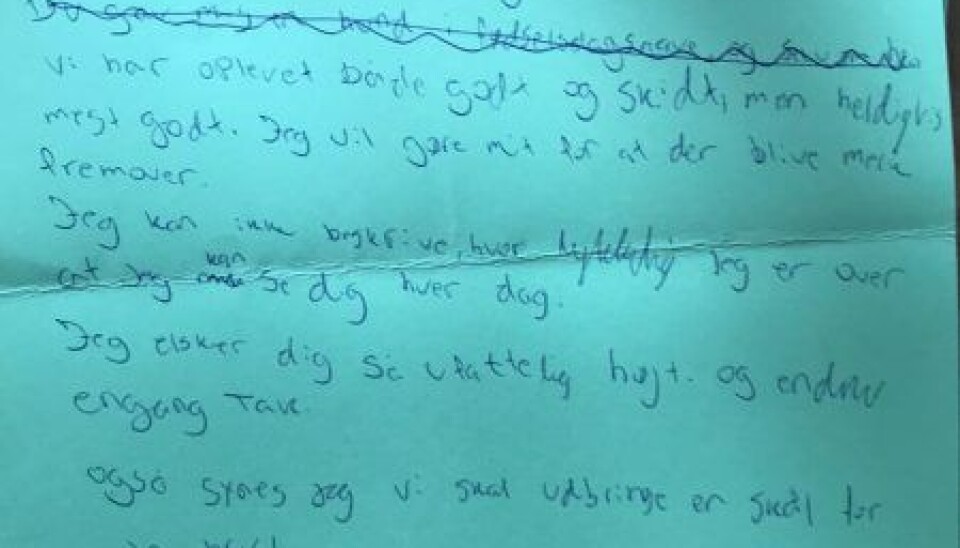 vi har oplevet både godt og skidt, men heldigvis
mest godt. Jeg vil gøre mit for at der blive mere
fremover.
Jeg kan ikke beskrive, hvor lykkelig jeg er over
at jeg kan se dig hver dag.
Jeg elsker dig så ufattelig højt. og endnu
engang Tak.
også synes jeg vi skal udbringe er skål for